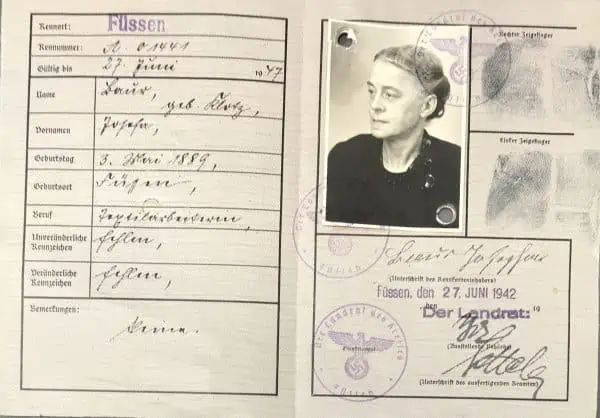 Kennort: Füssen
Kennnummer: A 01441
Gültig bis 27. Juni 1947
Name Baur,
geb. Klotz,
Vornamen Josefa,
Geburtstag 3. Mai 1889,
Geburtsort Füssen,
Beruf Textilarbeiterin,
Unveränderliche Kennzeichen fehlen,
Veränderliche Kennzeichen fehlen,
Bemerkungen:
keine.
Rechter Zeigefinger
Linker Zeigefinger
Baur Josepha
(Unterschrift des Kennkarteninhabers)
Füssen, den 27. JUNI 1942
den 19
Der Landrat:
(Ausstellende Behörde)
(Unterschrift des ausfertigenden Beamten)
Der Landrat des Kreises
Füssen